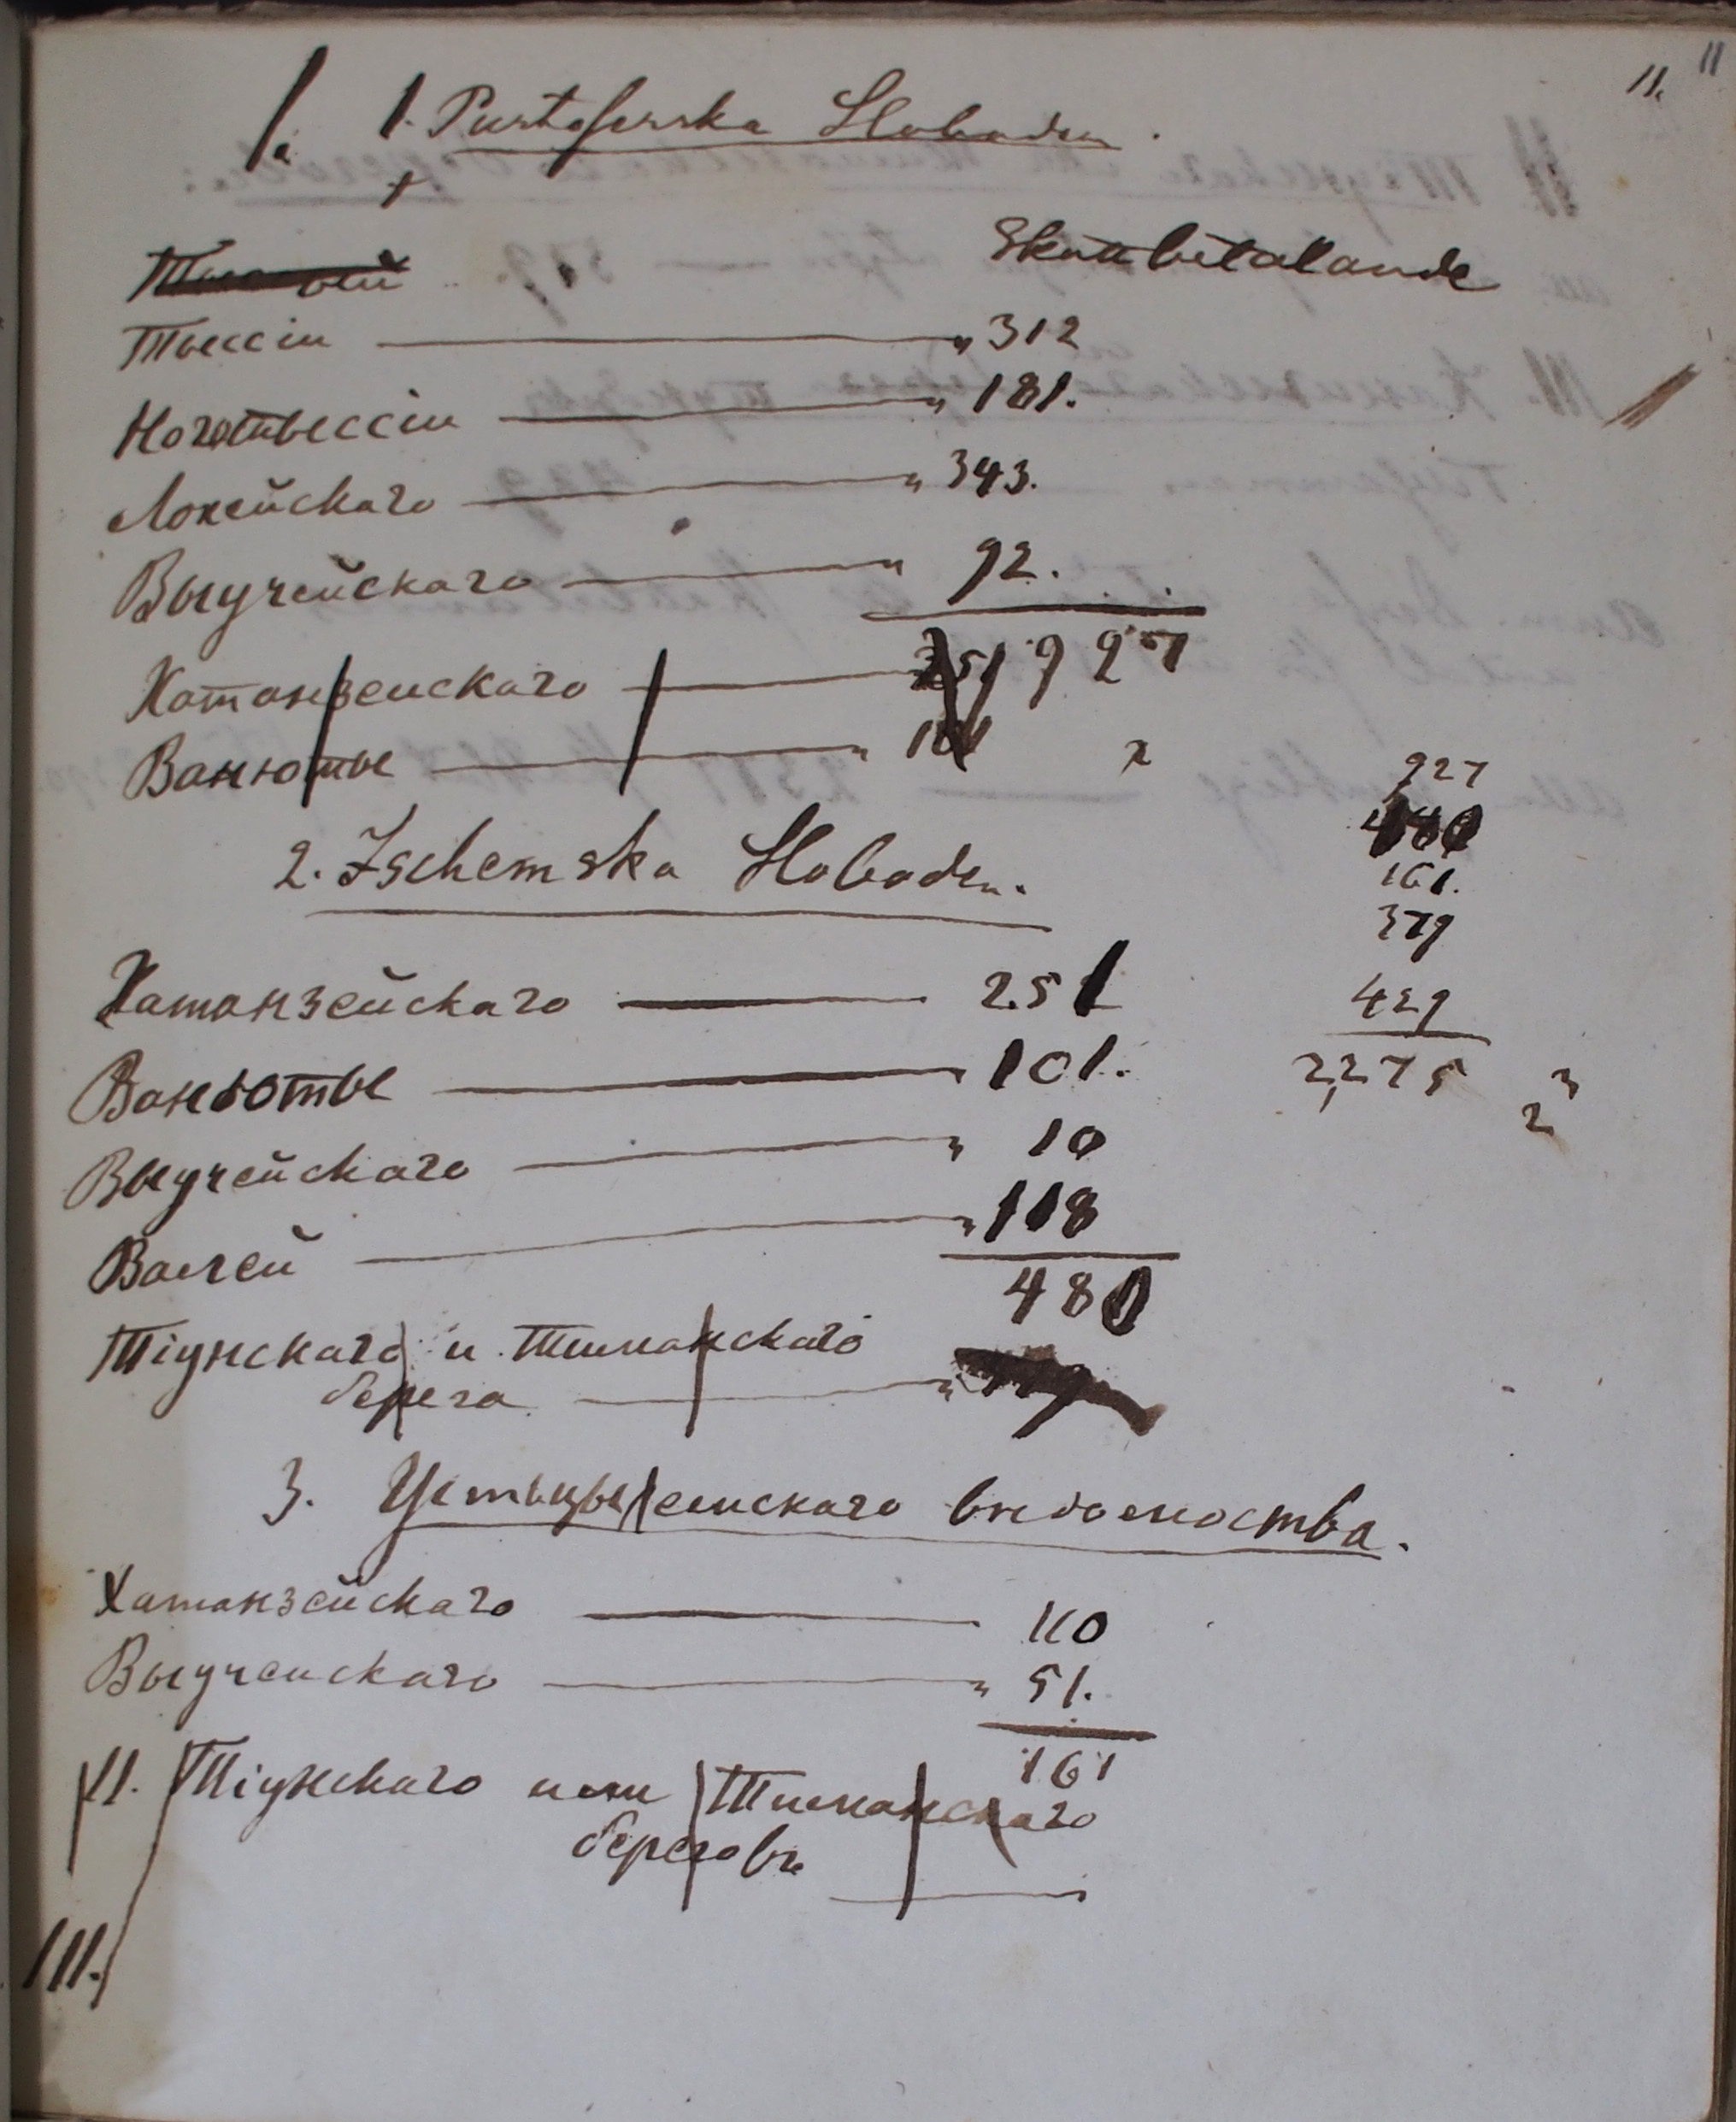 11
11.
I. 1. Pustoserska Sloboden.
Skattbetalande
Тыссіи — " 312
Ногатыссіи — " 181.
Локейскаго — " 343.
Выучейскаго — " 92.
927
Хатанзейскаго — 251
Ванюты — " 101
x
2. Ischemska Sloboden.
Хатанзейскаго — 251
Ванюты — " 101.
Выучейскаго — " 10
Валей — " 118
480
Тіунскаго и Тиманскаго
берега — "
3. Устьцылемскаго вѣдомства.
Хатанзейскаго — 110
Выучейскаго — " 51.
161
II. Тіунскаго или Тиманскаго
береговъ —
III.
927
480
161.
379
429
2,275
2 3